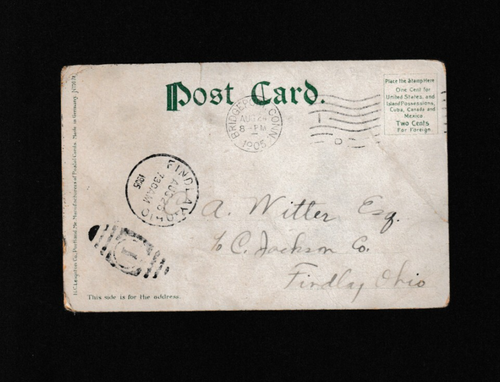 Post Card.
Place the Stamp Here
One Cent for
United States, and
Island Possessions,
Cuba, Canada and
Mexico
Two Cents
For Foreign.
BRIDGEPORT CONN.
AUG 24
8-PM
1905
FINDLAY, OHIO
AUG 26
730AM
1905
1
A. Witter Esq.
℅ C. Jackson Co.
Findlay Ohio
This side is for the address.
Hugh C. Leighton Co., Portland, Me. Manufacturers of Postal Cards. Made in Germany.